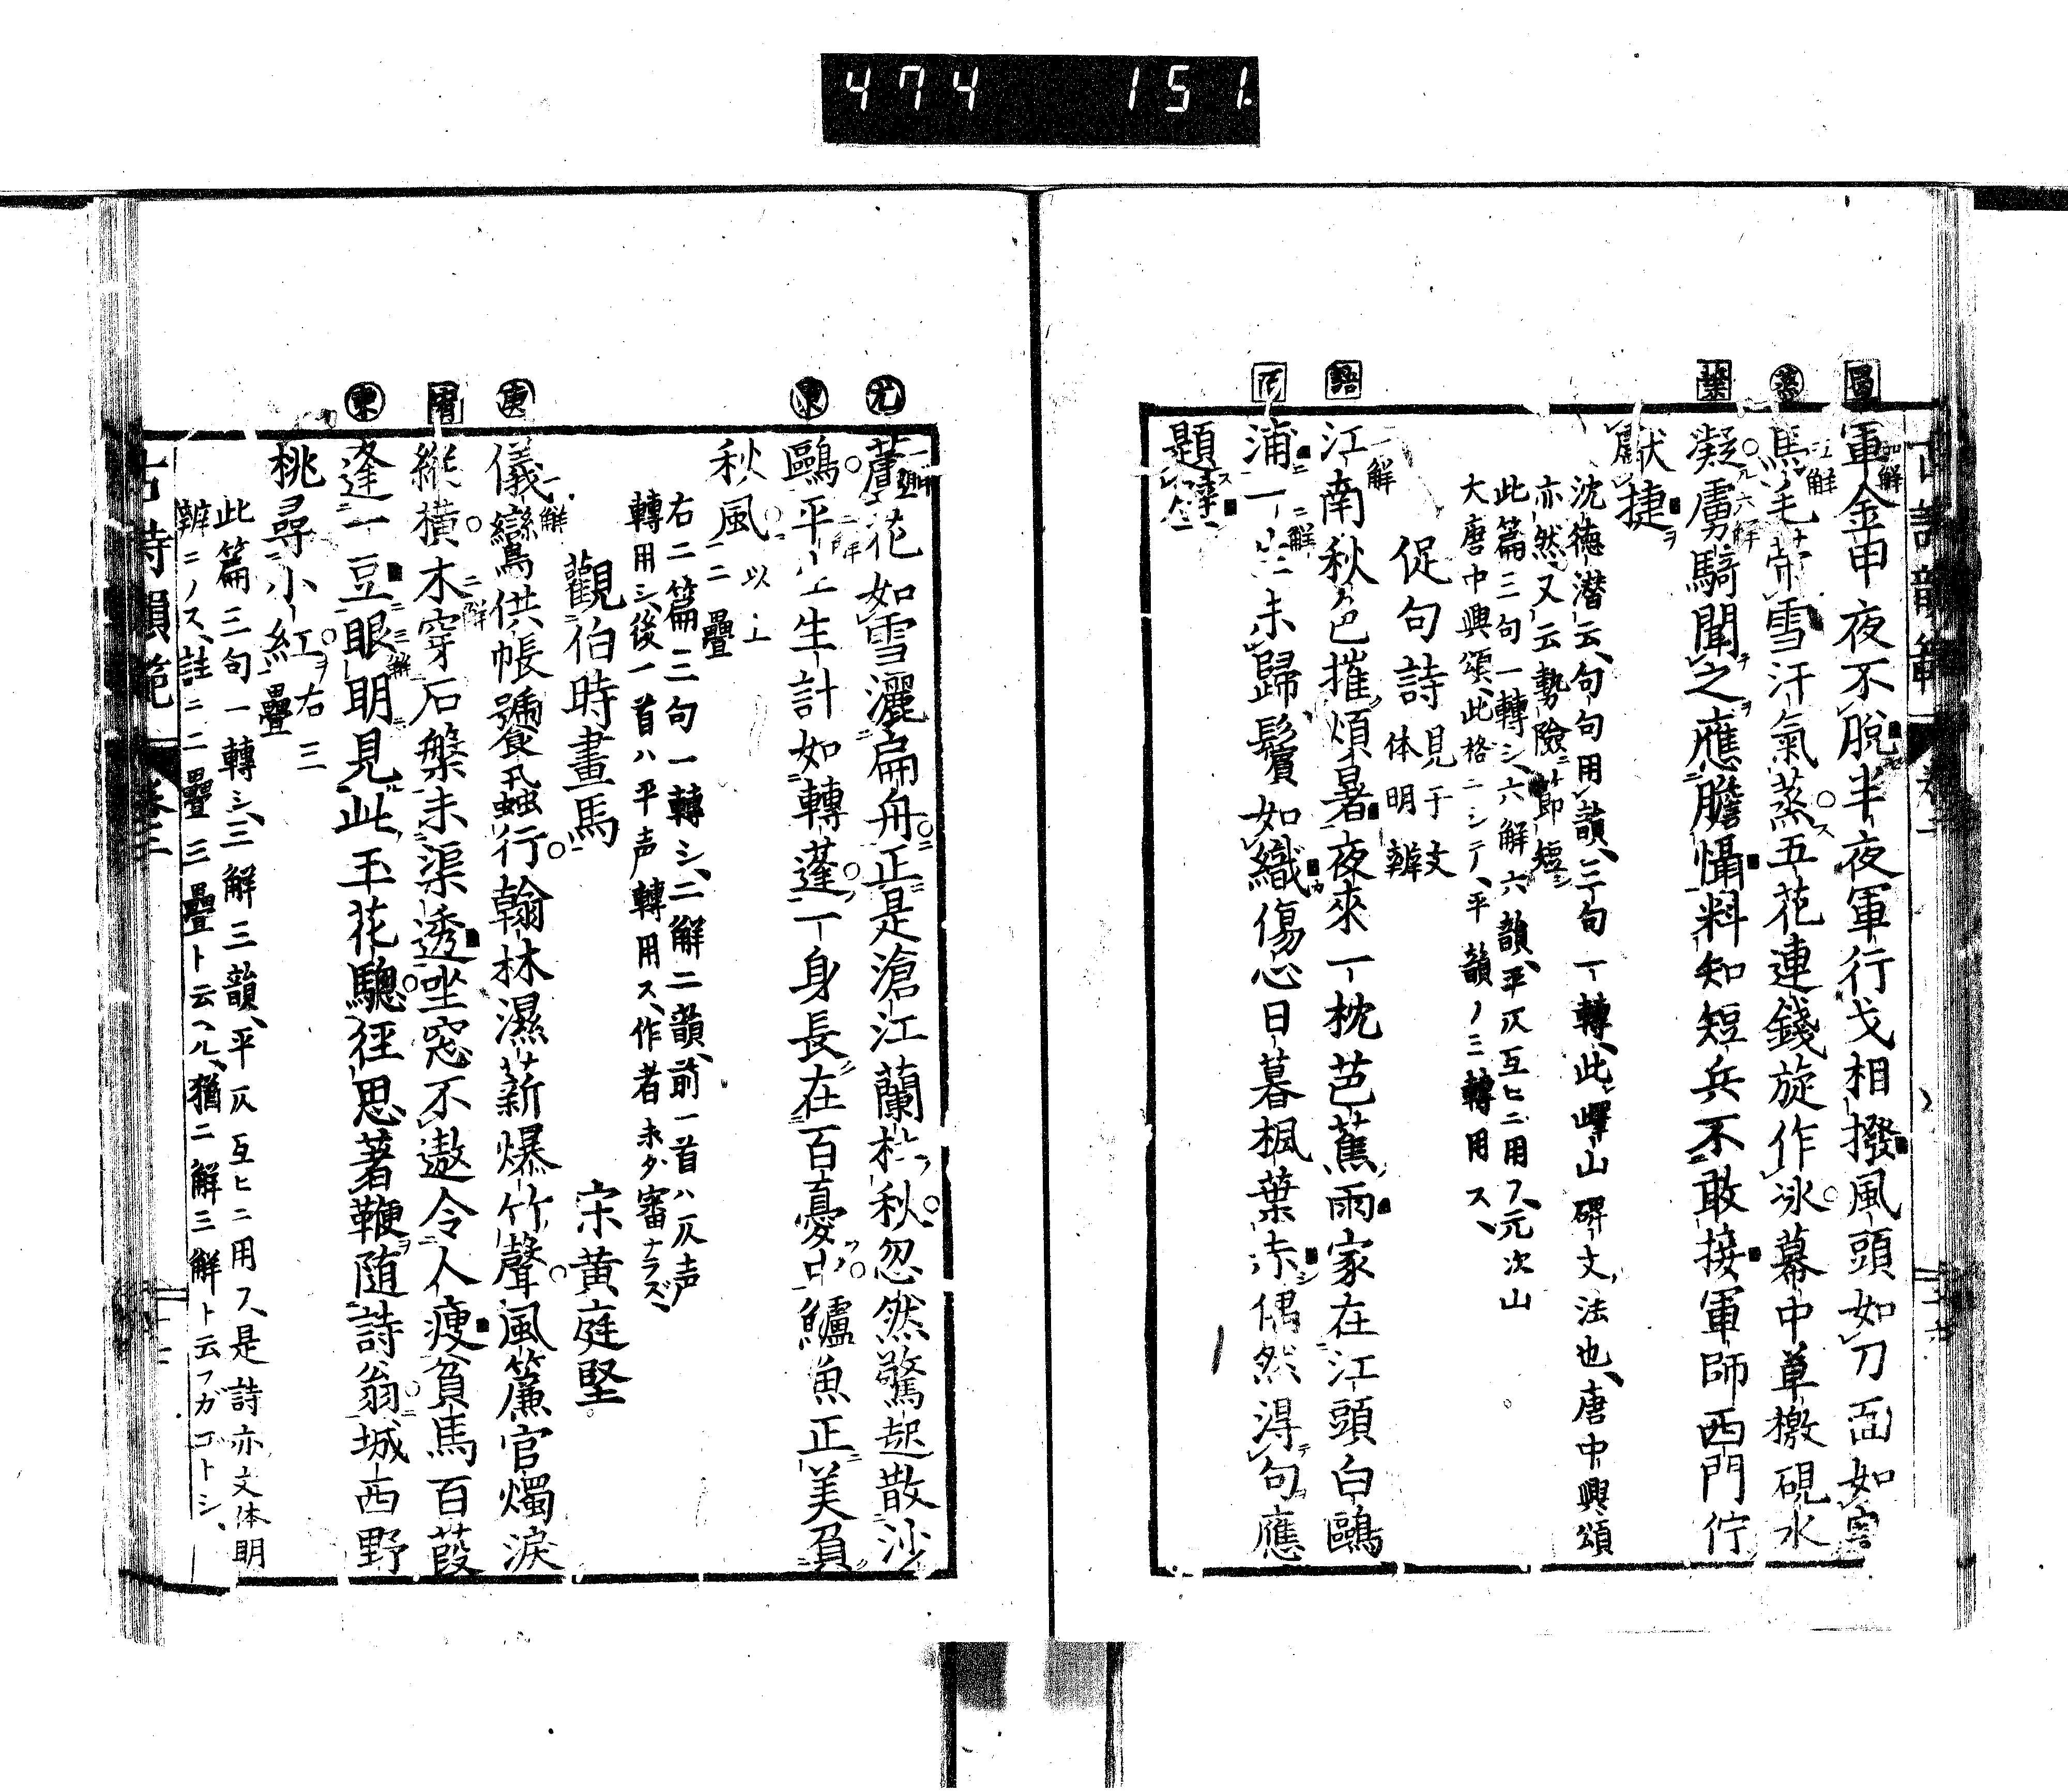 474 151
軍金甲夜不脫半夜軍行戈相撥風頭如刀面如
馬毛帶雪汗氣蒸五花連錢旋作冰幕中草檄硯水
凝虜騎聞之應膽懾料知短兵不敢接軍師西門佇
獻捷
沈徳潜云、句句用韻、三句一轉、此嶧山碑文法也、唐中興頌
亦然、又云勢險節短
此篇三句一轉シ、六解六韻、平仄互ヒニ用フ、元次山
大唐中興頌、此格ニシテ、平韻ノミ轉用ス、
促句詩 見于文体明辨
江南秋色摧煩暑夜來一枕芭蕉雨家在江頭白鷗
浦一生未歸鬢如織傷心日暮楓葉赤偶然得句應
題
蘆花如雪灑扁舟正是滄江蘭杜秋忽然驚起散沙
鷗平生生計如轉蓬一身長在百憂中鱸魚正美負
秋風 以上二疊
右二篇三句一轉シ、二解二韻、前一首ハ仄声
轉用シ、後一首ハ平声轉用ス、作者未ダ審ナラズ、
觀伯時畫馬 宋黄庭堅
儀鸞供帳饕虱行翰林濕薪爆竹聲風簾官燭淚
縱橫木穿石槃未渠透坐窓不遨令人瘦貧馬百䕞
逢一豆眼明見此玉花驄徑思著鞭随詩翁城西野
桃尋小紅 右三疊
此篇三句一轉シ、三解三韻、平仄互ヒニ用フ、是詩亦文体明
辨ニノス、註ニ二疊三疊ト云ヘル、猶二解三解ト云フガゴトシ、
古詩韻範 卷三